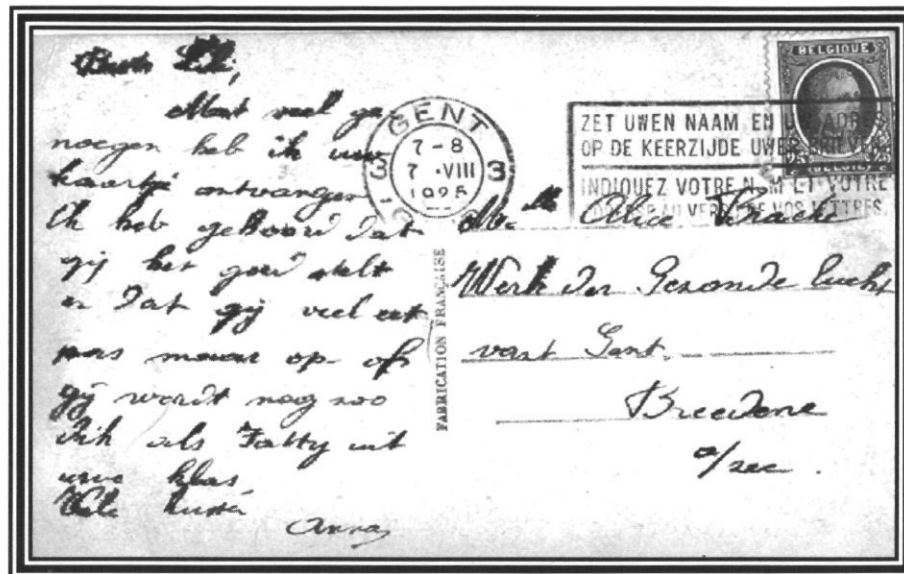 Beste Lili,
Met veel ge-
noegen heb ik uw
kaartje ontvangen
Ik heb gehoord dat
gij het goed stelt
en dat gij veel eet
pas maar op of
gij wordt nog zoo
dik als Fatty uit
uwe klas
Vele kussen
Anna
GENT
3 3
7-8
7 · VIII
1925
BELGIQUE
BELGIË
ZET UWEN NAAM EN UW ADRES
OP DE KEERZIJDE UWER BRIEVEN
INDIQUEZ VOTRE NOM ET VOTRE
ADRESSE AU VERSO DE VOS LETTRES.
FABRICATION FRANÇAISE
Melle Alice
Werk der Gezonde lucht
Gent.
Breedene
a/zee.